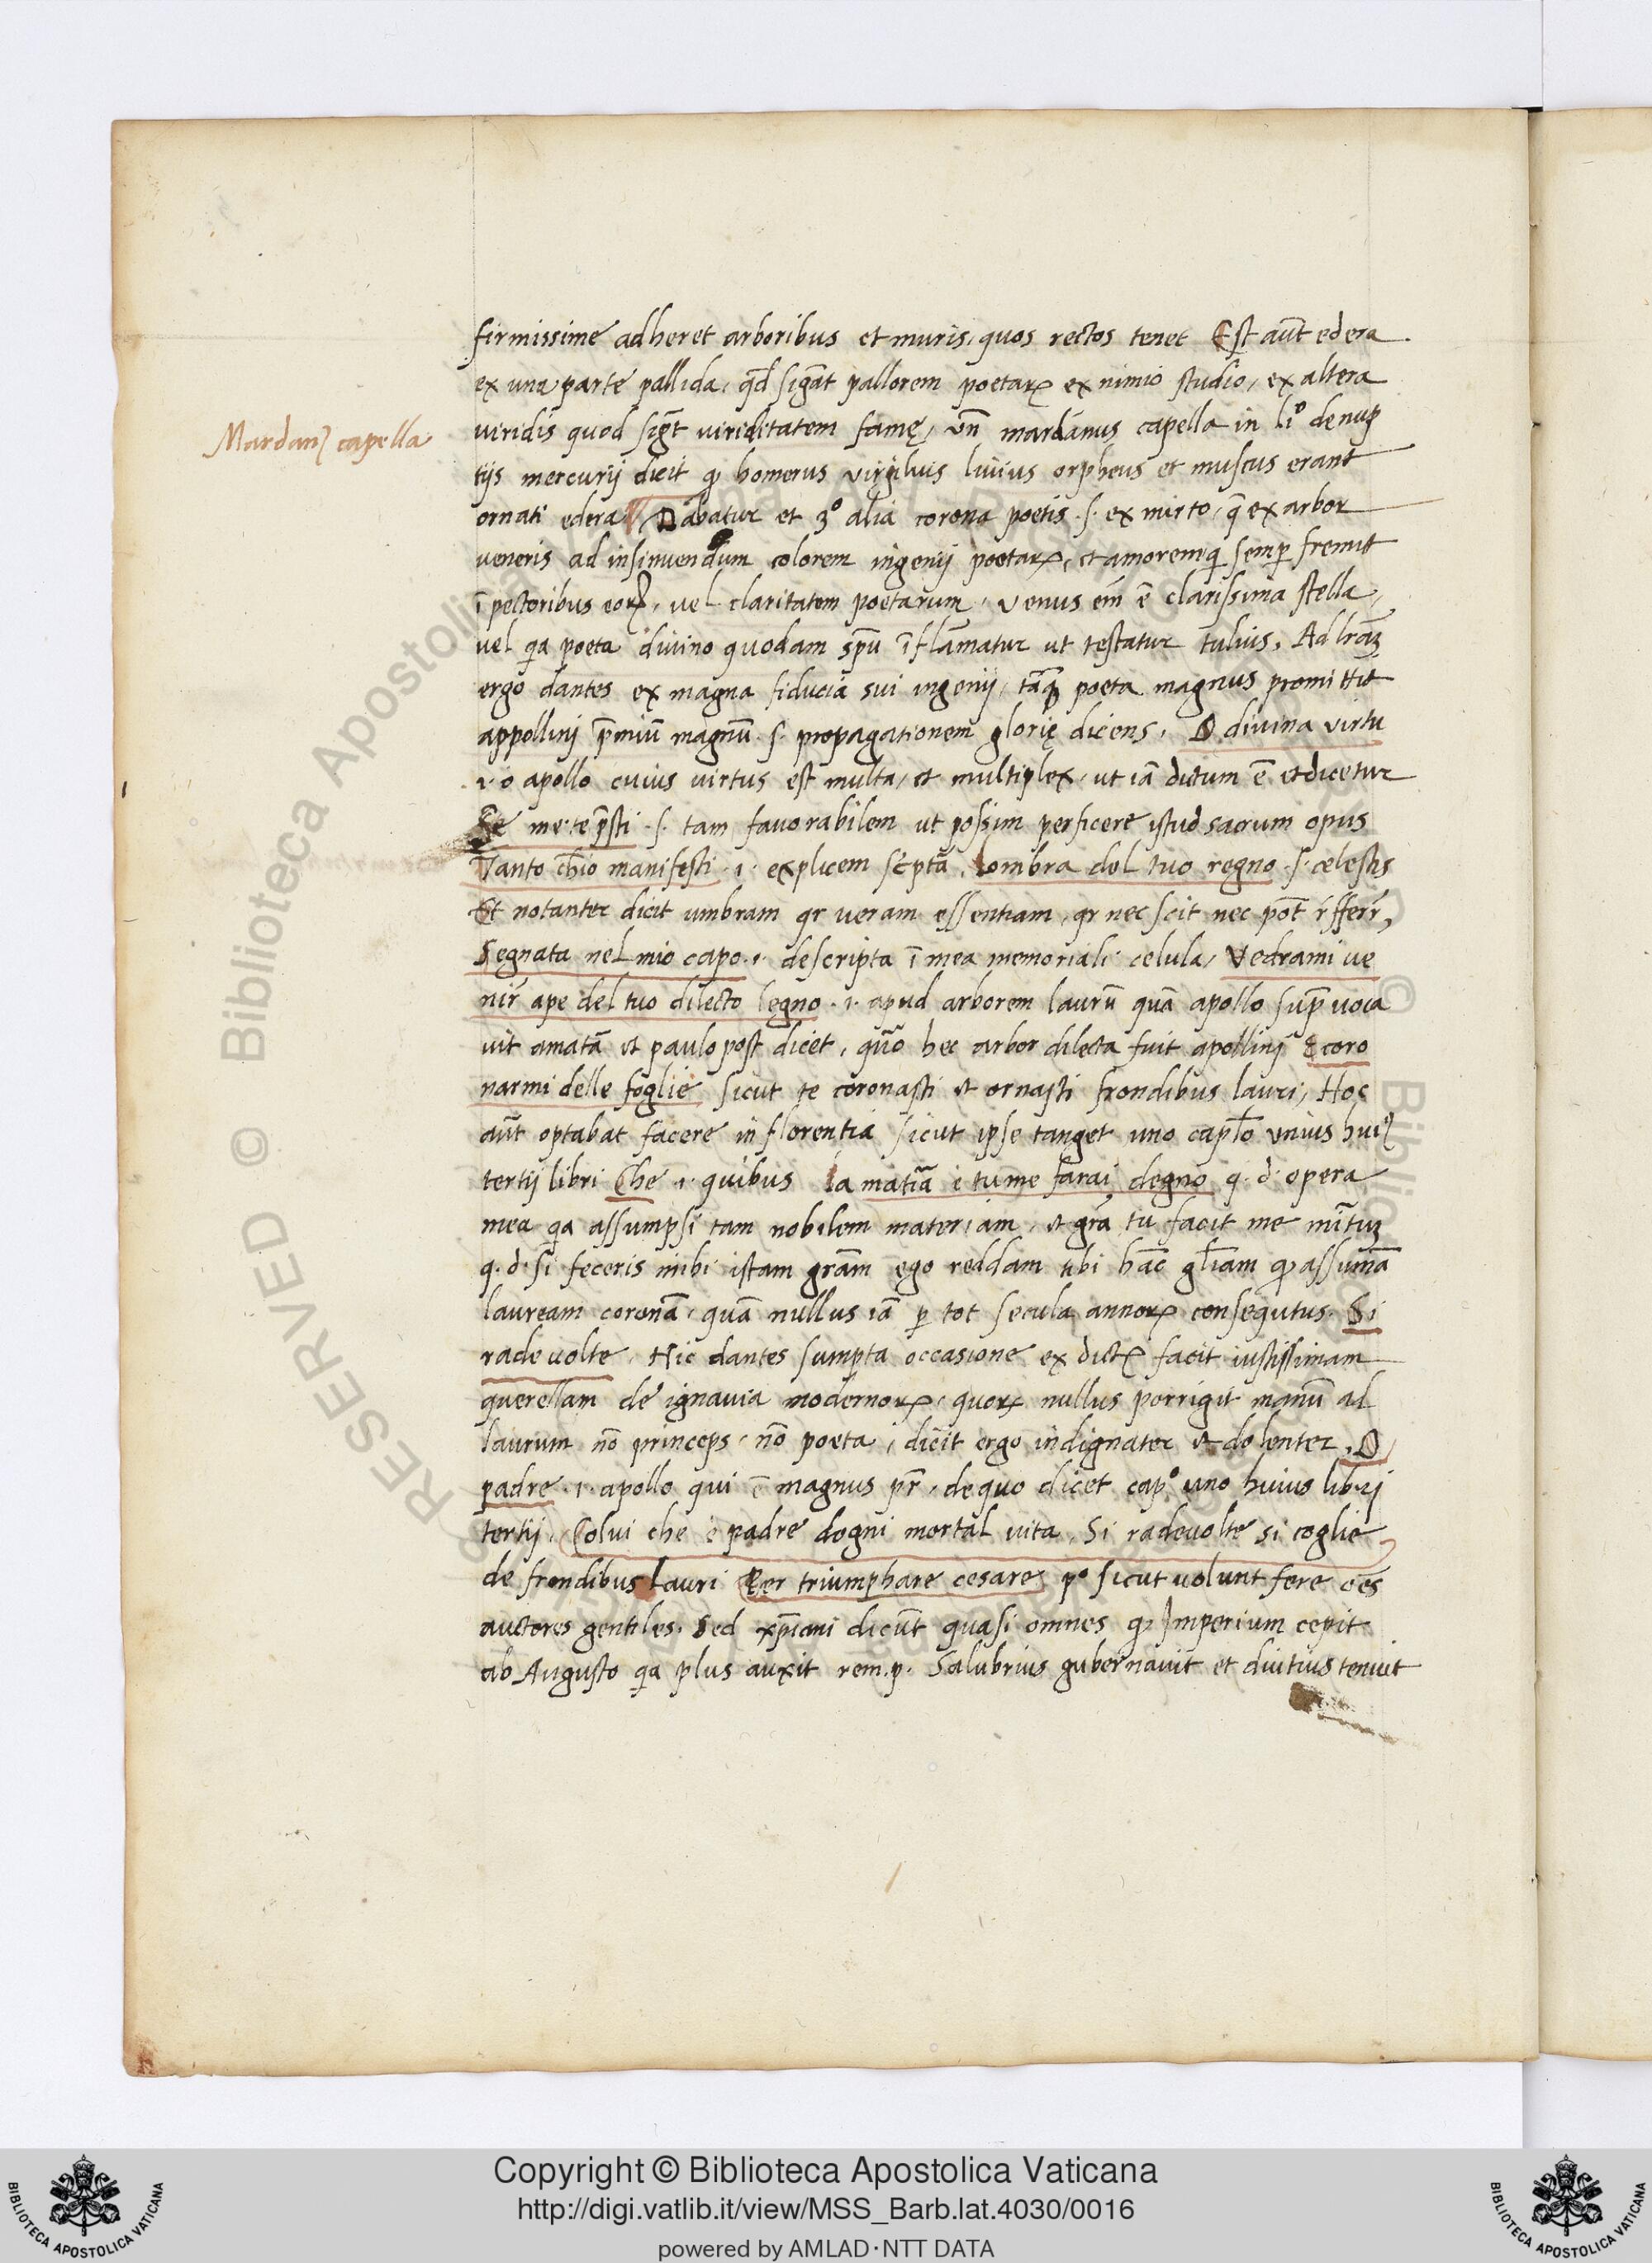 firmissime adheret arboribus et muris, quos rectos tenet Est aut̃ edera
ex una parte pallida, qd̃ sigãt pallorem poetaꝝ ex nimio studio, ex altera
Mardanꝰ capella
viridis quod sigt̃ viriditatem famę, vñ mardanus capella in liº de nup
tijs mercurij dicit ꝙ homerus virgilius livius orpheus et muscus erant
ornati edera Dabatur et 3º alia corona poetis .s. ex mirto, q̃ ex arbor
veneris ad insinuendum colorem ingenij poetaꝝ, et amoremq̃ semꝑ fremit
ĩ pectoribus eoꝝ, vel claritatem poetarum, venus em̃ ẽ clarissima stella,
vel qa poeta divino quodam spũ ĩflãmatur ut testatur tulius. Ad lrãm
ergo dantes ex magna fiducia sui ingenij, tãq̃ poeta magnus promittit
appollinj p̃miũ magnũ .s. propagationem glorię dicens, O divina virtu
.i. o apollo cuius virtus est multa, et multiplex, ut iã dictum ẽ et dicetur
Se me te p̃sti .s. tam favorabilem ut possim perficere istud sacrum opus
Tanto ch̃io manifesti .i. explicem sc̃pta, lombra del tuo regno .s. celestis
Et notanter dicit umbram qr veram essentiam, qr nec scit nec pot̃ r̃fferr̃,
Segnata nel mio capo .i. descripta ĩ mea memoriali celula, Vedrami ve
nir̃ ape del tuo dilecto legno .i. apud arborem laurũ quã apollo sup̃ voca
vit amatã et paulo post dicet, quõ hec arbor dilecta fuit apollinj E coro
narmi delle foglie sicut te coronasti et ornasti frondibus lauri, Hoc
aut̃ optabat facere in florentia sicut ipse tanget uno capl̃o unius huiꝰ
tertij libri Che .i. quibus la matĩa e tu me farai degno q. d. opera
mea qa assumpsi tam nobilem materiam, et grã tu facit me
q. d. si feceris mihi istam grãm ego reddam tibi hãc gl̃iam ꝙ assumã
lauream coronã, quã nullus iã ꝑ tot secula annoꝝ consegutus. Si
rade volte. Hic dantes sumpta occasione ex dictꝭ facit iustissimam
querellam de ignavia modernoꝝ, quoꝝ nullus porrigit manũ ad
laurum nõ princeps, nõ poeta, dicit ergo indignater et dolenter, O
padre .i. apollo qui ẽ magnus pr̃, de quo dicet capº uno huius librj
tertij. Colui che è padre dogni mortal vita. Si rade volte si coglie
de frondibus lauri Per triumphare cesare pº sicut volunt fere oẽs
auctores gentiles. Sed xp̃iani dicũt quasi omnes ꝙ Imperium cepit
ab Augusto qa plus auxit rem.p. Salubrius gubernavit et diutius tenuit
Copyright © Biblioteca Apostolica Vaticana
http://digi.vatlib.it/view/MSS_Barb.lat.4030/0016
powered by AMLAD·NTT DATA